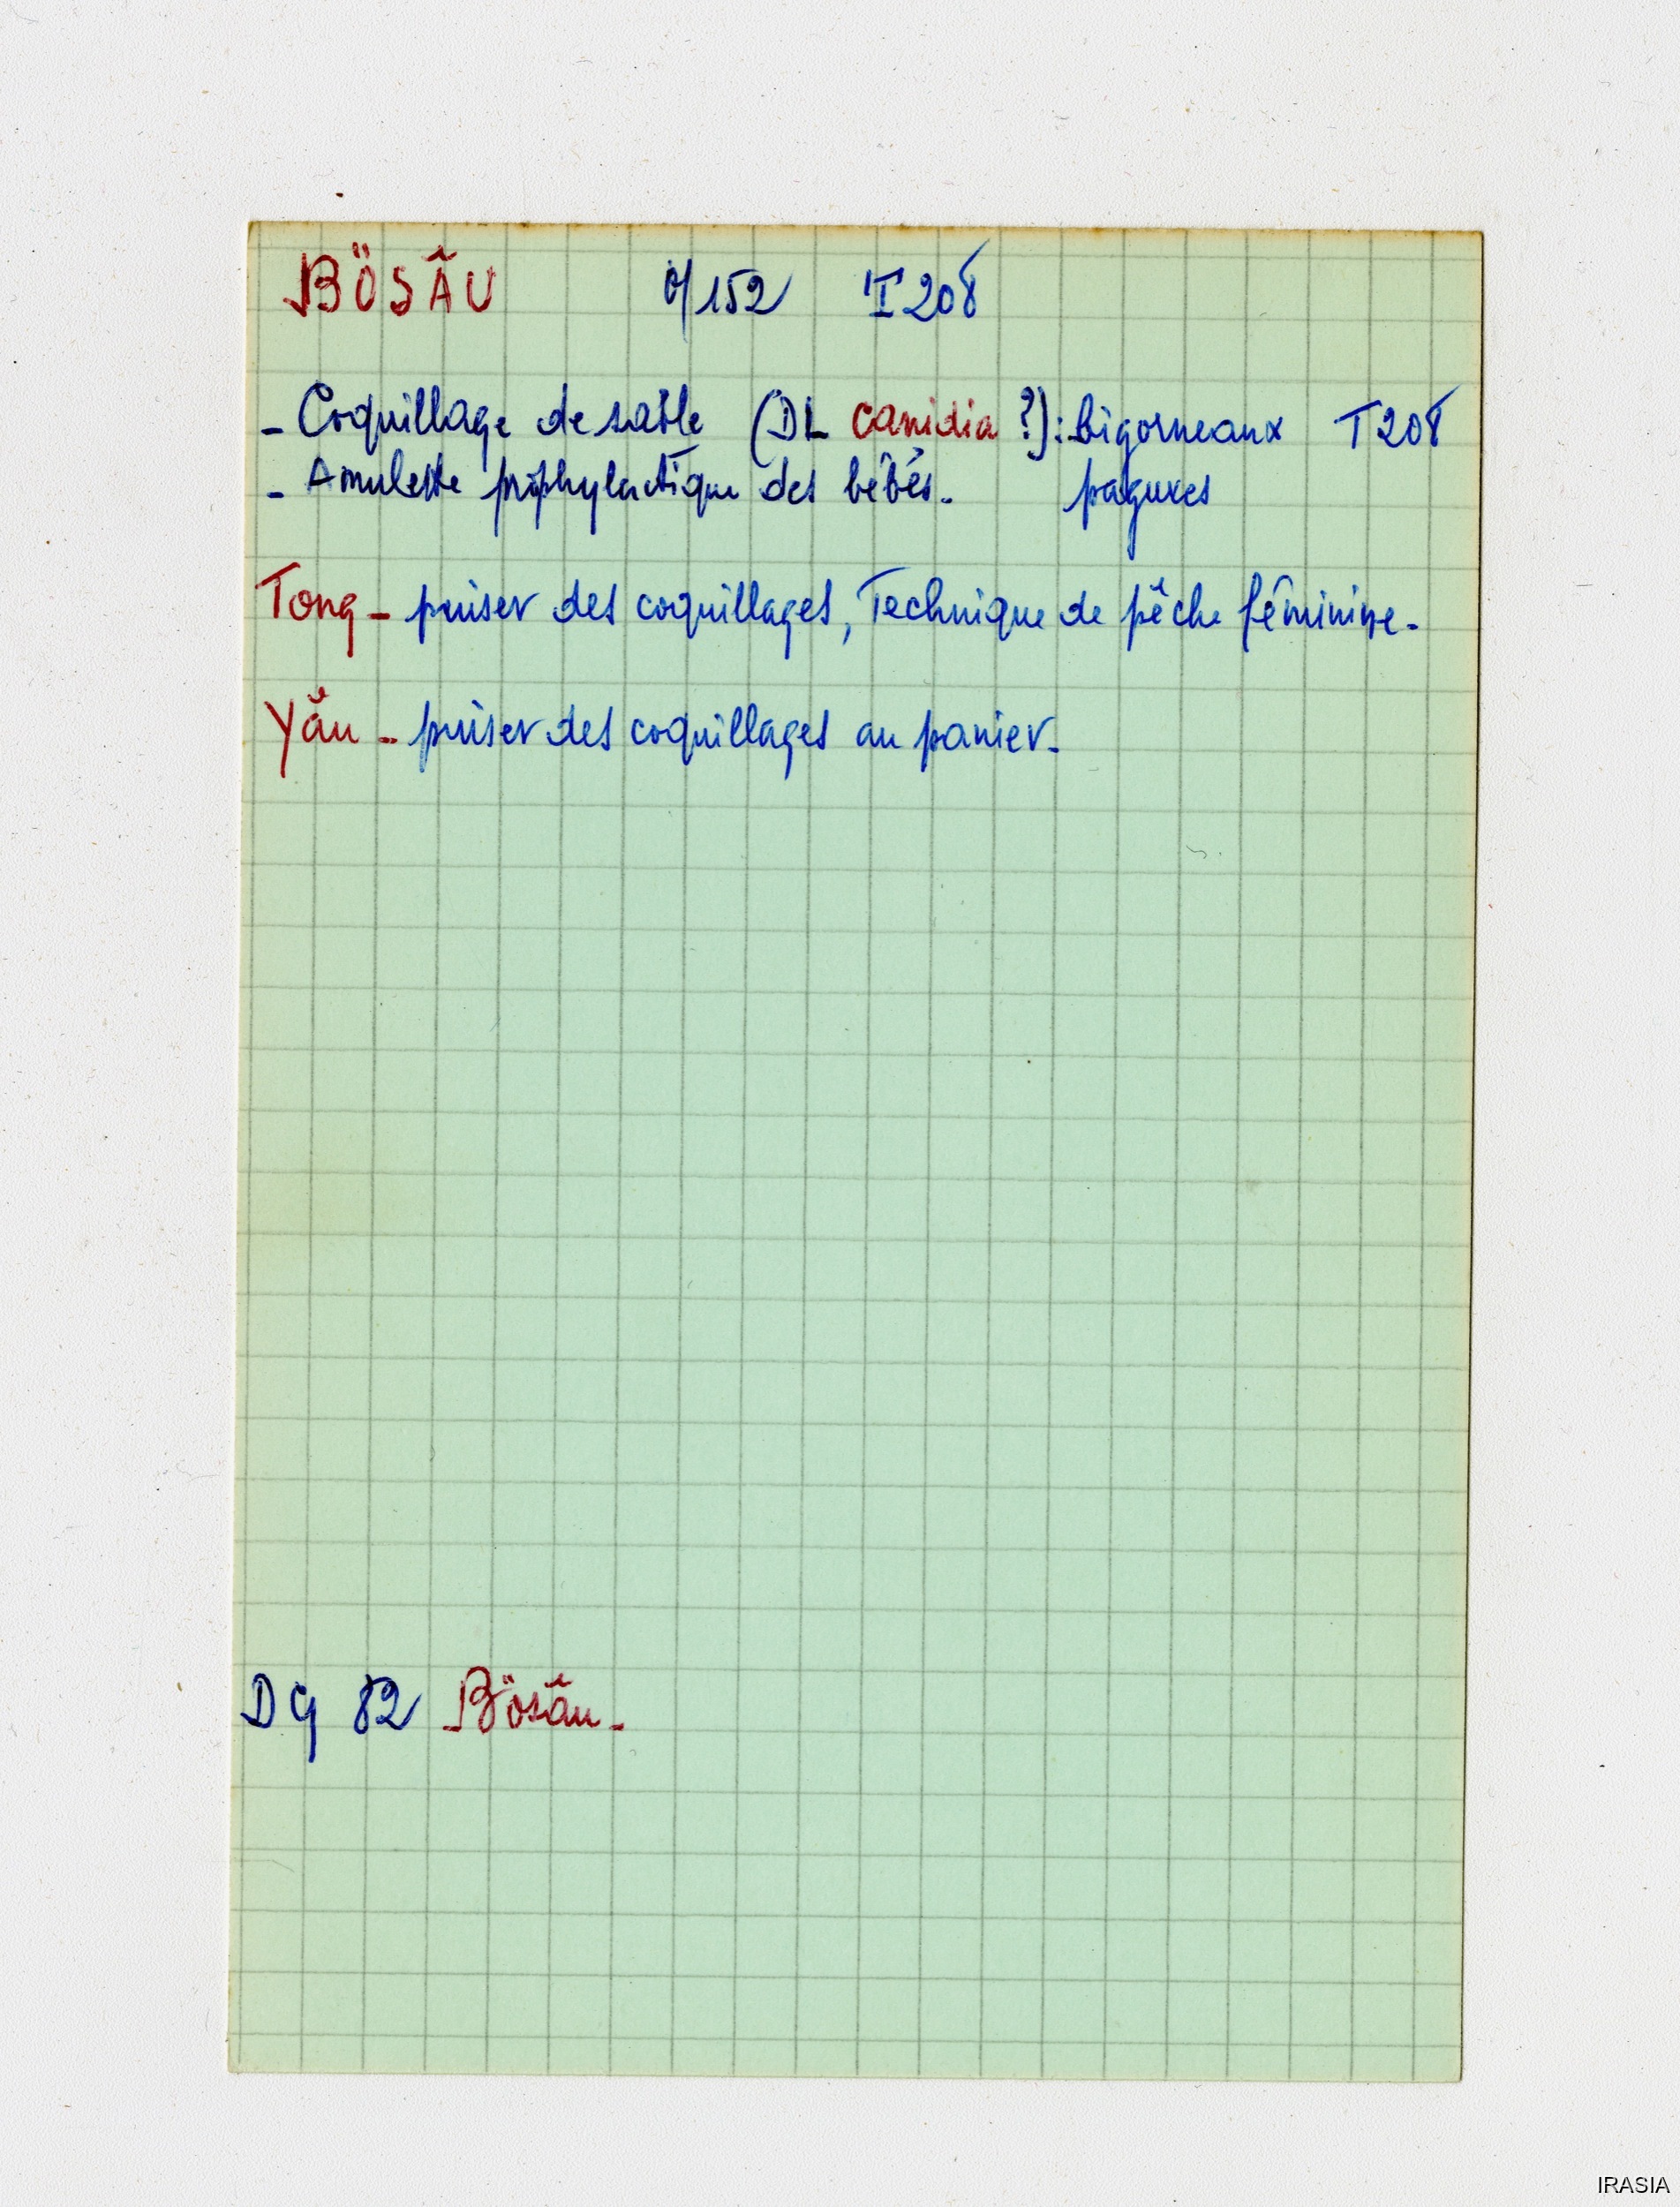 BÖSÂU 0/152 T208
- Coquillage de sable (DL canidia ?): bigorneaux T208
- Amulette prophylactique des bébés. pagures
Tong - puiser des coquillages, Technique de pêche féminine.
Yâu - puiser des coquillages au panier.
DG 82 Bösâu.
IRASIA